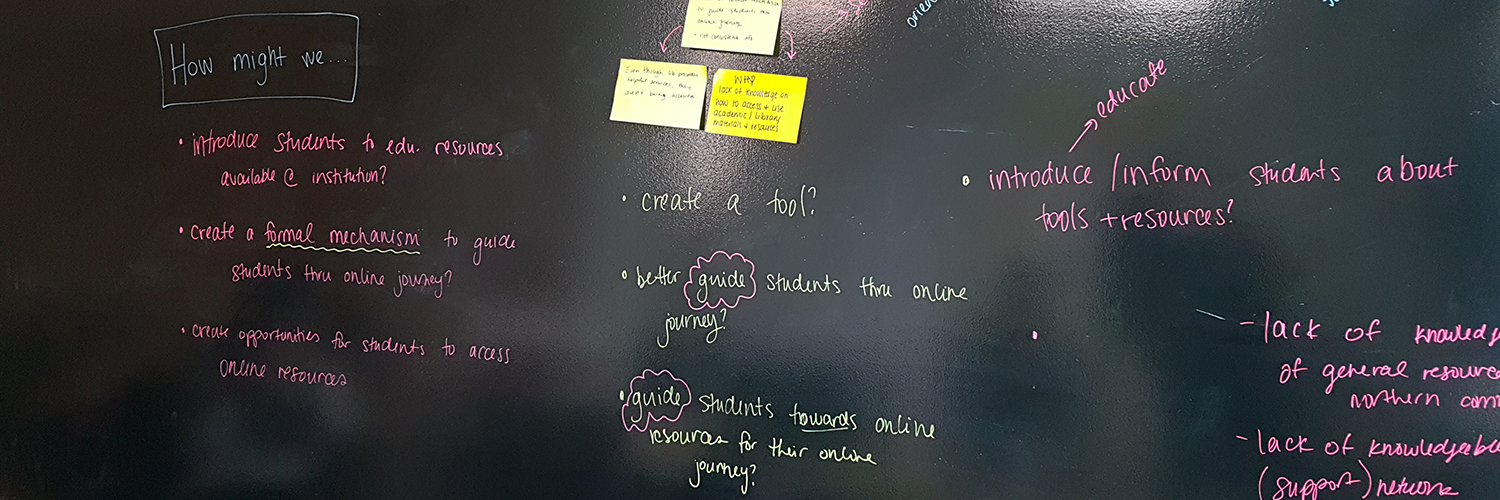 How might we...
• introduce students to edu. resources
available @ institution?
• create a formal mechanism to guide
students thru online journey?
• create opportunities for students to access
online resources
to guide students thru
online journey
• not consistent info
Even though
services, they
aren't being accessed
WHY?
lack of knowledge on
how to access + use
academic / library
materials + resources
• create a tool?
• better guide students thru online
journey?
• guide students towards online
resources for their online
journey?
educate
• introduce / inform students about
tools + resources?
•
- lack of knowledg
of general resource
northern com
- lack of knowledgeable
(support) network